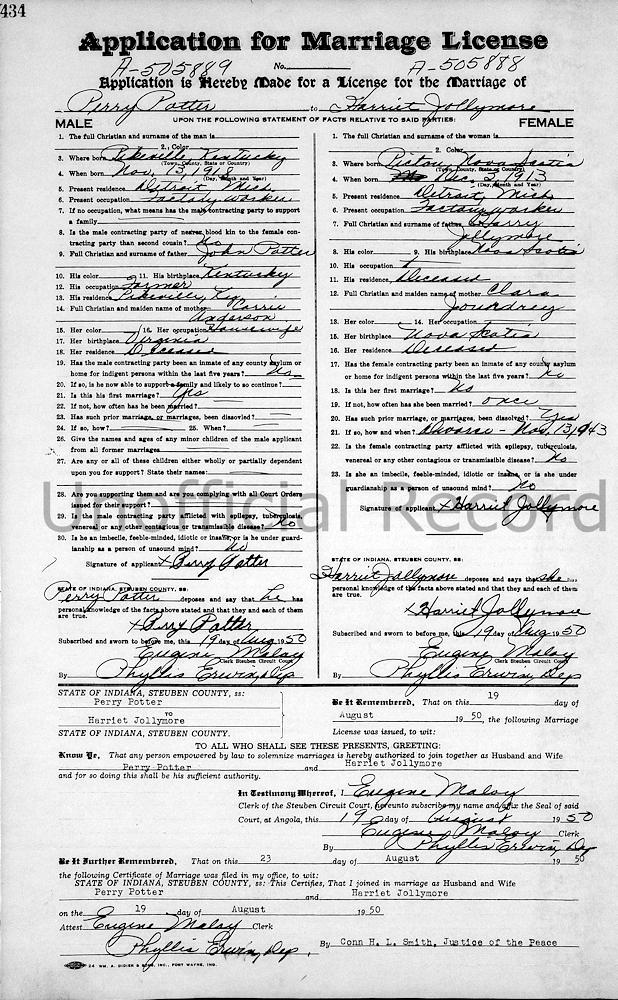 434
Application for Marriage License
A-505889 No. A-505888
Application is Hereby Made for a License for the Marriage of
Perry Potter to Harriet Jollymore
UPON THE FOLLOWING STATEMENT OF FACTS RELATIVE TO SAID PARTIES:
MALE
1. The full Christian and surname of the man is
2. Color
3. Where born Pikeville, Kentucky
(Town, County, State or Country)
4. When born Nov. 13, 1918
(Day, Month and Year)
5. Present residence Detroit Mich.
6. Present occupation Factory worker
7. If no occupation, what means has the male contracting party to support
a family
8. Is the male contracting party of nearer blood kin to the female con-
tracting party than second cousin? No
9. Full Christian and surname of father John Potter
10. His color 11. His birthplace Kentucky
12. His occupation Farmer
13. His residence Pikeville, Ky.
14. Full Christian and maiden name of mother Carrie
Anderson
15. Her color 16. Her occupation Housewife
17. Her birthplace Virginia
18. Her residence Deceased
19. Has the male contracting party been an inmate of any county asylum or
home for indigent persons within the last five years? No
20. If so, is he now able to support a family and likely to continue?
21. Is this his first marriage? Yes
22. If not, how often has he been married?
23. Has such prior marriage, or marriages, been dissolved?
24. If so, how? 25. When?
26. Give the names and ages of any minor children of the male applicant
from all former marriages
27. Are any or all of these children either wholly or partially dependent
upon you for support? State their names:
28. Are you supporting them and are you complying with all Court Orders
issued for their support?
29. Is the male contracting party afflicted with epilepsy, tuberculosis,
venereal or any other contagious or transmissible disease? No
30. Is he an imbecile, feeble-minded, idiotic or insane, or is he under guard-
ianship as a person of unsound mind? No
Signature of applicant x Perry Potter
STATE OF INDIANA, STEUBEN COUNTY, ss:
Perry Potter deposes and say that he has
personal knowledge of the facts above stated and that they and each of them
are true.
x Perry Potter
Subscribed and sworn to before me, this 19 day of Aug 1950
Eugene Maloy
Clerk Steuben Circuit Court
By Phyllis Erwin, Dep
FEMALE
1. The full Christian and surname of the woman is
2. Color
3. Where born Pictou, Nova Scotia
(Town, County, State or Country)
4. When born Dec. 2, 1913
(Day, Month and Year)
5. Present residence Detroit, Mich
6. Present occupation Factory worker
7. Full Christian and surname of father Harry
Jollymore
8. His color 9. His birthplace Nova Scotia
10. His occupation
11. His residence Deceased
12. Full Christian and maiden name of mother Clara
13. Her color 14. Her occupation
15. Her birthplace Nova Scotia
16. Her residence Deceased
17. Has the female contracting party been an inmate of any county asylum
or home for indigent persons within the last five years? No
18. Is this her first marriage? No
19. If not, how often has she been married? once
20. Has such prior marriage, or marriages, been dissolved? Yes
21. If so, how and when? Divorce - Nov. 13, 1943
22. Is the female contracting party afflicted with epilepsy, tuberculosis,
venereal or any other contagious or transmissible disease? No
23. Is she an imbecile, feeble-minded, idiotic or insane, or is she under
guardianship as a person of unsound mind? No
Signature of applicant x Harriet Jollymore
STATE OF INDIANA, STEUBEN COUNTY, ss:
Harriet Jollymore deposes and says that she has
personal knowledge of the facts above stated and that they and each of them
are true.
x Harriet Jollymore
Subscribed and sworn to before me, this 19 day of Aug 1950
Eugene Maloy
Clerk Steuben Circuit Court
By Phyllis Erwin, Dep
Unofficial Record
STATE OF INDIANA, STEUBEN COUNTY, ss:
Perry Potter
TO
Harriet Jollymore
STATE OF INDIANA, STEUBEN COUNTY.
Be It Remembered, That on this 19 day of
August 1950, the following Marriage
License was issued, to wit:
TO ALL WHO SHALL SEE THESE PRESENTS, GREETING:
Know Ye, That any person empowered by law to solemnize marriages is hereby authorized to join together as Husband and Wife
Perry Potter and Harriet Jollymore
and for so doing this shall be his sufficient authority.
In Testimony Whereof, I Eugene Maloy
Clerk of the Steuben Circuit Court, hereunto subscribe my name and affix the Seal of said
Court, at Angola, this 19 day of August 1950
Eugene Maloy Clerk
By Phyllis Erwin, Dep
Be It Further Remembered, That on this 23 day of August 1950
the following Certificate of Marriage was filed in my office, to wit:
STATE OF INDIANA, STEUBEN COUNTY, ss: This Certifies, That I joined in marriage as Husband and Wife
Perry Potter and Harriet Jollymore
on the 19 day of August 1950
Attest Eugene Maloy Clerk
Phyllis Erwin, Dep. By Conn H. L. Smith, Justice of the Peace
24 WM. A. DIDIER & SONS, INC., FORT WAYNE, IND.